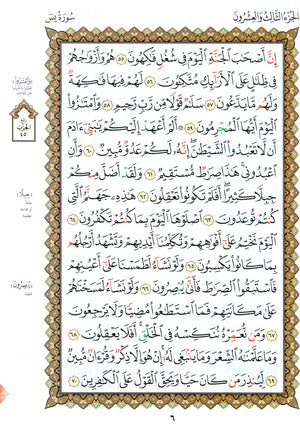 الجزء الثالث والعشرون
سورة يس
إِنَّ أَصْحَٰبَ ٱلْجَنَّةِ ٱلْيَوْمَ فِى شُغُلٍ فَٰكِهُونَ ٥٥ هُمْ وَأَزْوَٰجُهُمْ
فِى ظِلَٰلٍ عَلَى ٱلْأَرَآئِكِ مُتَّكِـُٔونَ ٥٦ لَهُمْ فِيهَا فَٰكِهَةٌ
وَلَهُم مَّا يَدَّعُونَ ٥٧ سَلَٰمٌ قَوْلًا مِّن رَّبٍّ رَّحِيمٍ ٥٨ وَٱمْتَٰزُوا۟
ٱلْيَوْمَ أَيُّهَا ٱلْمُجْرِمُونَ ٥٩ أَلَمْ أَعْهَدْ إِلَيْكُمْ يَٰبَنِىٓ ءَادَمَ
أَن لَّا تَعْبُدُوا۟ ٱلشَّيْطَٰنَ إِنَّهُۥ لَكُمْ عَدُوٌّ مُّبِينٌ ٦٠ وَأَنِ
ٱعْبُدُونِى هَٰذَا صِرَٰطٌ مُّسْتَقِيمٌ ٦١ وَلَقَدْ أَضَلَّ مِنكُمْ
جِبِلًّا كَثِيرًا أَفَلَمْ تَكُونُوا۟ تَعْقِلُونَ ٦٢ هَٰذِهِۦ جَهَنَّمُ ٱلَّتِى
كُنتُمْ تُوعَدُونَ ٦٣ ٱصْلَوْهَا ٱلْيَوْمَ بِمَا كُنتُمْ تَكْفُرُونَ ٦٤
ٱلْيَوْمَ نَخْتِمُ عَلَىٰٓ أَفْوَٰهِهِمْ وَتُكَلِّمُنَآ أَيْدِيهِمْ وَتَشْهَدُ أَرْجُلُهُم
بِمَا كَانُوا۟ يَكْسِبُونَ ٦٥ وَلَوْ نَشَآءُ لَطَمَسْنَا عَلَىٰٓ أَعْيُنِهِمْ
فَٱسْتَبَقُوا۟ ٱلصِّرَٰطَ فَأَنَّىٰ يُبْصِرُونَ ٦٦ وَلَوْ نَشَآءُ لَمَسَخْنَٰهُمْ
عَلَىٰ مَكَانَتِهِمْ فَمَا ٱسْتَطَٰعُوا۟ مُضِيًّا وَلَا يَرْجِعُونَ
٦٧ وَمَن نُّعَمِّرْهُ نُنَكِّسْهُ فِى ٱلْخَلْقِ أَفَلَا يَعْقِلُونَ ٦٨
وَمَا عَلَّمْنَٰهُ ٱلشِّعْرَ وَمَا يَنۢبَغِى لَهُۥٓ إِنْ هُوَ إِلَّا ذِكْرٌ وَقُرْءَانٌ مُّبِينٌ
٦٩ لِّيُنذِرَ مَن كَانَ حَيًّا وَيَحِقَّ ٱلْقَوْلُ عَلَى ٱلْكَٰفِرِينَ ٧٠
٦